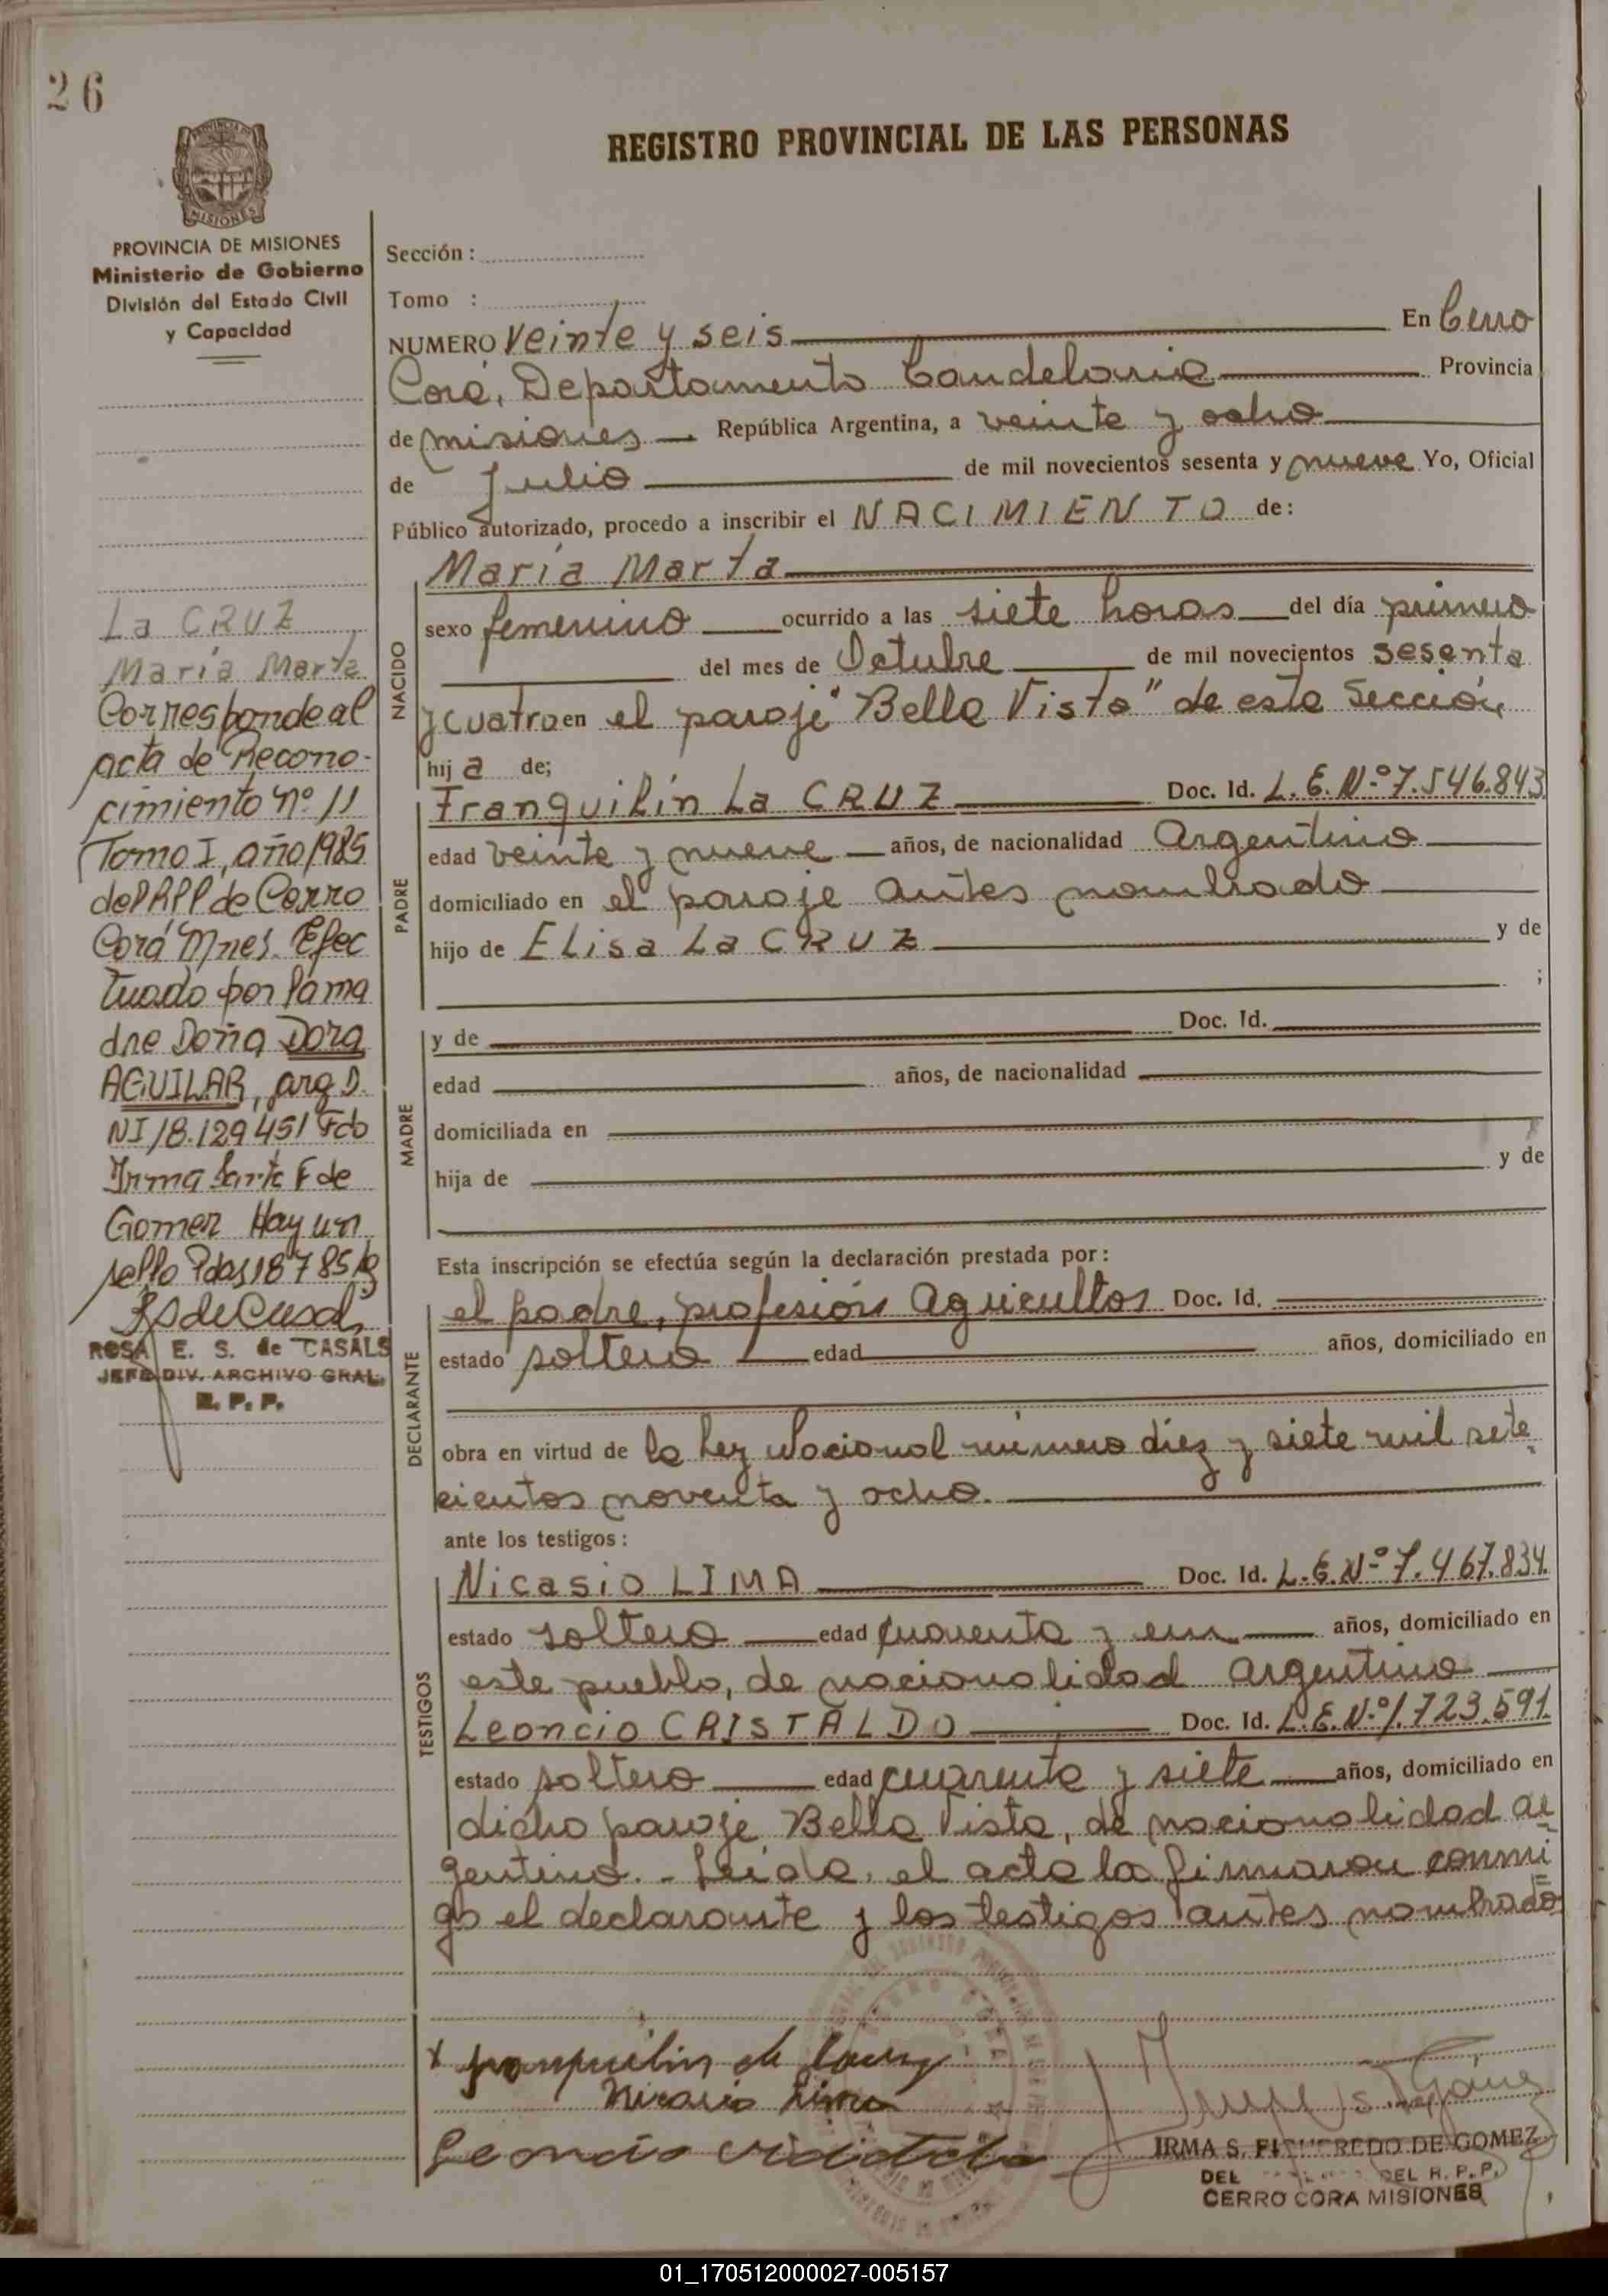 26
REGISTRO PROVINCIAL DE LAS PERSONAS
PROVINCIA DE
MISIONES
PROVINCIA DE MISIONES
Ministerio de Gobierno
División del Estado Civil
y Capacidad
La CRUZ
María Marta
Corresponde al
acta de Recono-
cimiento nº 11
Tomo I, año 1985
del RPP de Cerro
Corá Mnes. Efec
tuado por la ma
dre Doña Dora
AGUILAR, arg D.
NI 18.129451 Fdo
Irma F de
Gomez Hay un
sello Pdas 18 7 85
RSdeCasals
ROSA E. S. de CASALS
JEFE DIV. ARCHIVO GRAL.
R. P. P.
Sección :
Tomo :
NUMERO Veinte y seis En Cerro
Corá, Departamento Candelaria Provincia
de misiones República Argentina, a veinte y ocho
de Julio de mil novecientos sesenta y nueve Yo, Oficial
Público autorizado, procedo a inscribir el NACIMIENTO de:
NACIDO
María Marta
sexo femenino ocurrido a las siete horas del día primero
del mes de Octubre de mil novecientos sesenta
y cuatro en el paraje "Bella Vista" de esta Sección,
hij a de;
PADRE
Tranquilín La CRUZ Doc. Id. L.E.Nº 7.546.843
edad veinte y nueve años, de nacionalidad Argentino
domiciliado en el paraje antes nombrado
hijo de Elisa La CRUZ y de
;
MADRE
y de Doc. Id.
edad años, de nacionalidad
domiciliada en
hija de y de
Esta inscripción se efectúa según la declaración prestada por:
DECLARANTE
el padre, profesión Agricultor Doc. Id.
estado soltero edad años, domiciliado en
obra en virtud de la Ley Nacional número diez y siete mil sete
cientos noventa y ocho.
ante los testigos:
TESTIGOS
Nicasio LIMA Doc. Id. L.E.Nº 7.467.834.
estado soltero edad cuarenta y un años, domiciliado en
este pueblo, de nacionalidad argentino
Leoncio CRISTALDO Doc. Id. L.E.Nº 1.723.591.
estado soltero edad cuarenta y siete años, domiciliado en
dicho paraje Bella Vista, de nacionalidad ar
gentino. - Leída, el acta la firmaron conmi
go el declarante y los testigos antes nombrado
Nicasio Lima
IRMA S. FIGUEREDO DE GOMEZ
DEL DEL R. P. P.
CERRO CORA MISIONES
01_170512000027-005157